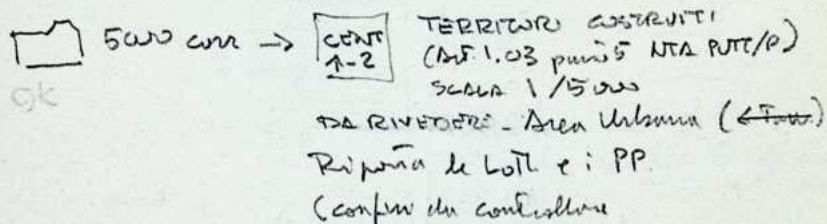 5000 corr → CENT 1-2 TERRITORI COSTRUITI
ok (Art. 1.03 punto 5 NTA PUTT/P)
SCALA 1/5000
DA RIVEDERE - Area Urbana (←
Riporta le Lott e i PP
(confini da controllare